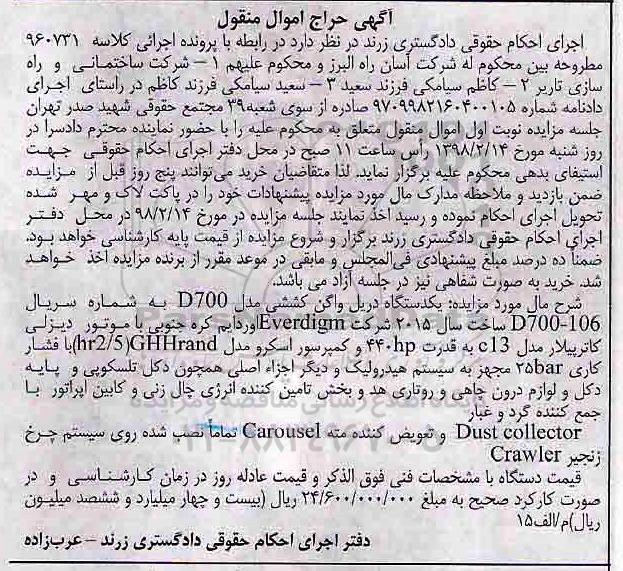 آگهی حراج اموال منقول
اجرای احکام حقوقی دادگستری زرند در نظر دارد در رابطه با پرونده اجرائی کلاسه ۹۶۰۷۳۱
مطروحه بین محکوم له شرکت آسان راه البرز و محکوم علیهم ۱ – شرکت ساختمانی و راه
سازی تاریر ۲ – کاظم سیامکی فرزند سعید ۳ – سعید سیامکی فرزند کاظم در راستای اجرای
دادنامه شماره ۹۷۰۹۹۸۲۱۶۰۴۰۰۱۰۵ صادره از سوی شعبه۳۹ مجتمع حقوقی شهید صدر تهران
جلسه مزایده نوبت اول اموال منقول متعلق به محکوم علیه را با حضور نماینده محترم دادسرا در
روز شنبه مورخ ۱۳۹۸/۲/۱۴ رأس ساعت ۱۱ صبح در محل دفتر اجرای احکام حقوقی جهت
استیفای بدهی محکوم علیه برگزار نماید. لذا متقاضیان خرید می‌توانند پنج روز قبل از مزایده
ضمن بازدید و ملاحظه مدارک مال مورد مزایده پیشنهادات خود را در پاکت لاک و مهر شده
تحویل اجرای احکام نموده و رسید اخذ نمایند جلسه مزایده در مورخ ۹۸/۲/۱۴ در محل دفتر
اجرای احکام حقوقی دادگستری زرند برگزار و شروع مزایده از قیمت پایه کارشناسی خواهد بود.
ضمناً ده درصد مبلغ پیشنهادی فی‌المجلس و مابقی در موعد مقرر از برنده مزایده اخذ خواهد
شد. خرید به صورت شفاهی نیز در جلسه آزاد می باشد.
شرح مال مورد مزایده: یکدستگاه دریل واگن کششی مدل D700 به شماره سریال
D700-106 ساخت سال ۲۰۱۵ شرکت Everdigmوردایم کره جنوبی با موتور دیزلی
کاترپیلار مدل c13 به قدرت ۴۴۰hp و کمپرسور اسکرو مدل GHHrand(hr2/5)با فشار
کاری ۲۵bar مجهز به سیستم هیدرولیک و دیگر اجزاء اصلی همچون دکل تلسکوپی و پایه
دکل و لوازم درون چاهی و روتاری هد و بخش تامین کننده انرژی چال زنی و کابین اپراتور با
جمع کننده گرد و غبار
Dust collector و تعویض کننده مته Carousel تماماً نصب شده روی سیستم چرخ
زنجیر Crawler
قیمت دستگاه با مشخصات فنی فوق الذکر و قیمت عادله روز در زمان کارشناسی و در
صورت کارکرد صحیح به مبلغ ۲۴/۶۰۰/۰۰۰/۰۰۰ ریال (بیست و چهار میلیارد و ششصد میلیون
ریال)م/الف۱۵
دفتر اجرای احکام حقوقی دادگستری زرند – عرب‌زاده